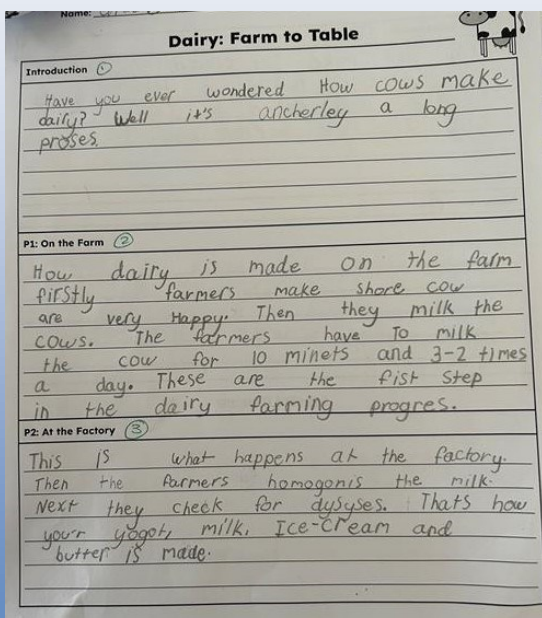 Name:
Dairy: Farm to Table
Introduction 1
Have you ever wondered How cows make
dairy? Well it's ancherley a long
proses.
P1: On the Farm 2
How dairy is made on the farm
firstly farmers make shore cow
are very Happy. Then they milk the
cows. The farmers have To milk
the cow for 10 minets and 3-2 times
a day. These are the fist step
in the dairy farming progres.
P2: At the Factory 3
This is what happens at the factory.
Then the farmers homogonis the milk.
Next they check for dysyses. Thats how
you'r yogot, milk, Ice-cream and
butter is made.